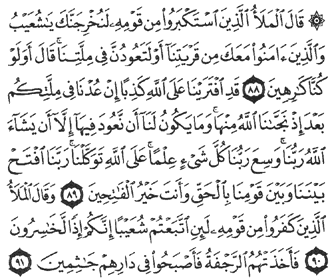 ۞ قَالَ ٱلْمَلَأُ ٱلَّذِينَ ٱسْتَكْبَرُوا۟ مِن قَوْمِهِۦ لَنُخْرِجَنَّكَ يَٰشُعَيْبُ
وَٱلَّذِينَ ءَامَنُوا۟ مَعَكَ مِن قَرْيَتِنَآ أَوْ لَتَعُودُنَّ فِى مِلَّتِنَا ۚ قَالَ أَوَلَوْ
كُنَّا كَٰرِهِينَ ٨٨ قَدِ ٱفْتَرَيْنَا عَلَى ٱللَّهِ كَذِبًا إِنْ عُدْنَا فِى مِلَّتِكُم
بَعْدَ إِذْ نَجَّىٰنَا ٱللَّهُ مِنْهَا ۚ وَمَا يَكُونُ لَنَآ أَن نَّعُودَ فِيهَآ إِلَّآ أَن يَشَآءَ
ٱللَّهُ رَبُّنَا ۚ وَسِعَ رَبُّنَا كُلَّ شَىْءٍ عِلْمًا ۚ عَلَى ٱللَّهِ تَوَكَّلْنَا ۚ رَبَّنَا ٱفْتَحْ
بَيْنَنَا وَبَيْنَ قَوْمِنَا بِٱلْحَقِّ وَأَنتَ خَيْرُ ٱلْفَٰتِحِينَ ٨٩ وَقَالَ ٱلْمَلَأُ
ٱلَّذِينَ كَفَرُوا۟ مِن قَوْمِهِۦ لَئِنِ ٱتَّبَعْتُمْ شُعَيْبًا إِنَّكُمْ إِذًا لَّخَٰسِرُونَ
٩٠ فَأَخَذَتْهُمُ ٱلرَّجْفَةُ فَأَصْبَحُوا۟ فِى دَارِهِمْ جَٰثِمِينَ ٩١